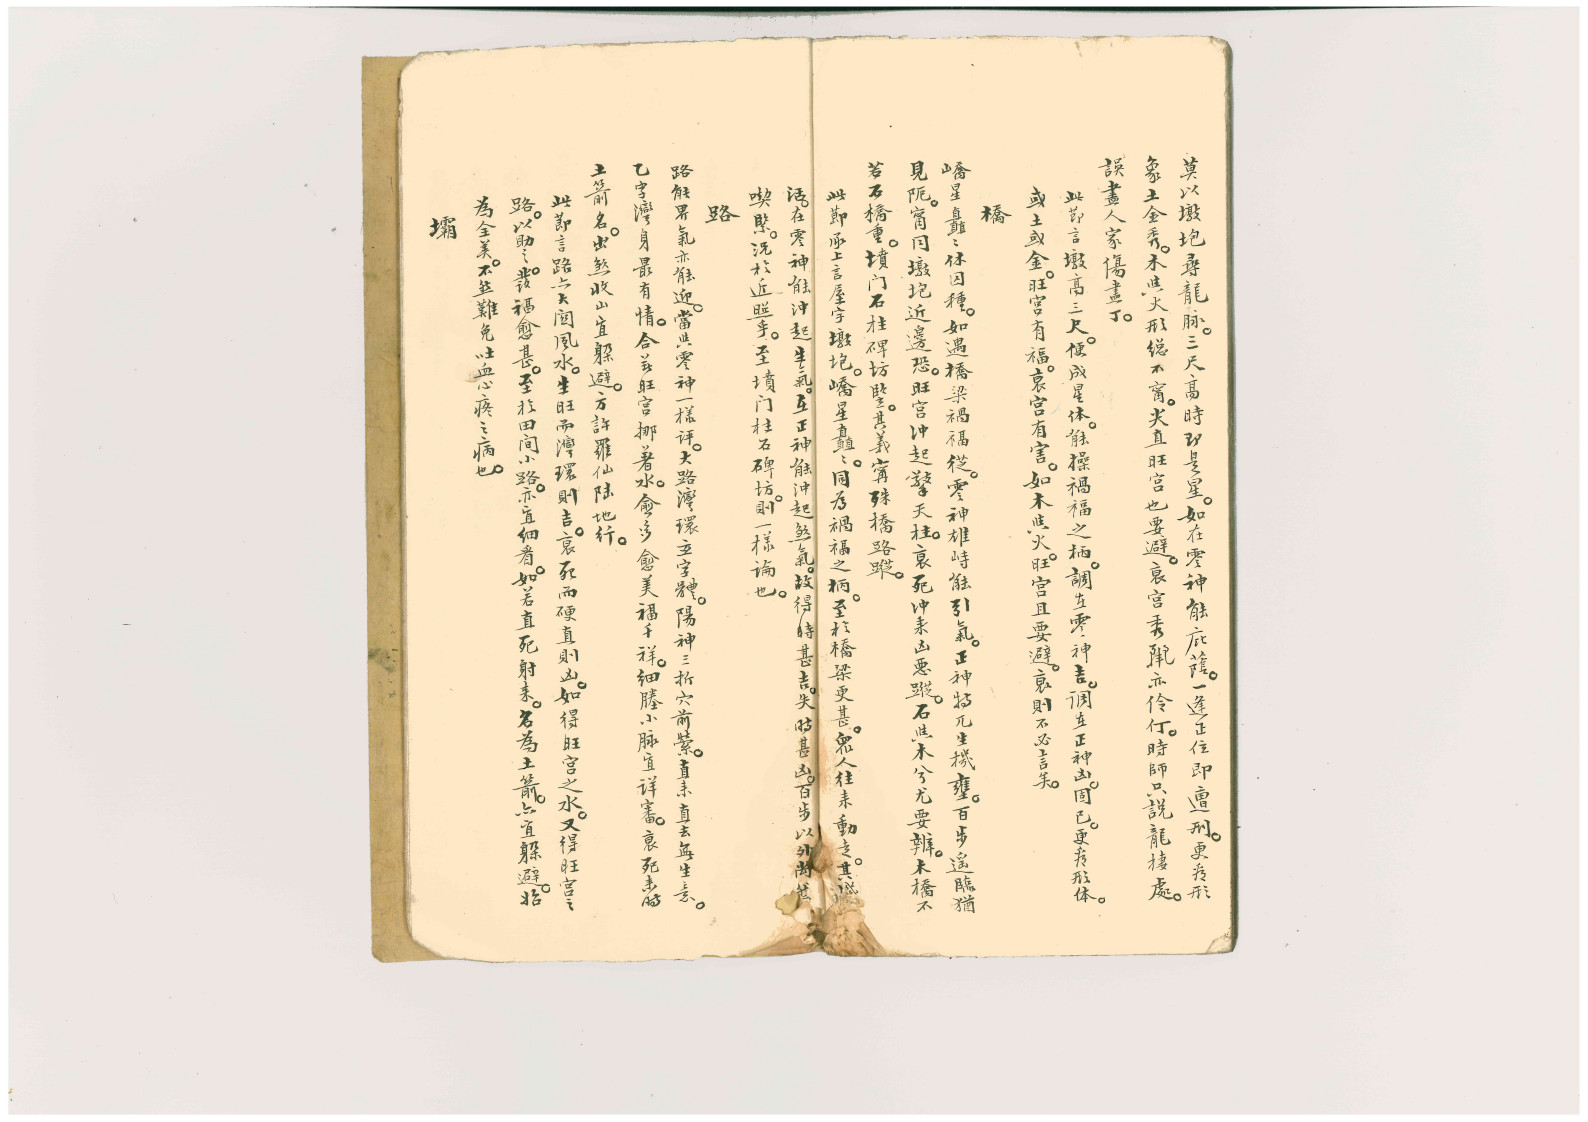 莫以墩垉尋龍脉。三尺高時即是星。如在零神能庇蔭。一逢正位即遭刑。更看形
象土金秀。木與火形總不甯。尖直旺宮也要避。衰宮秀麗亦伶仃。時師只說龍棲處。
誤盡人家傷盡丁。
此節言墩高三尺。便成星体。能操禍福之柄。調在零神吉。調在正神凶。固已。更看形体。
或土或金。旺宮有福。衰宮有害。如木與火。旺宮且要避。衰則不必言矣。
橋
嶠星矗〻休囚種。如遇橋梁禍福從。零神雄峙能引氣。正神特兀生機壅。百步遥臨猶
見阨。甯同墩垉近邊恐。旺宮冲起擎天柱。衰死冲来凶惡蹤。石與木兮尤要辨。木橋不
若石橋重。墳门石柱碑坊竪。其義寗殊橋路蹤。
此節承上言屋宇墩垉。嶠星矗〻。同為禍福之柄。至於橋梁更甚。衆人往来動走。其
活。在零神能沖起生氣。在正神能沖起煞氣。故得時甚吉。失時甚凶。百步以外尚
喫緊。况於近照乎。至墳门柱石碑坊。則一樣論也。
路
路能界氣亦能迎。當與零神一樣评。大路灣環玄字體。陽神三折穴前縈。直来直去無生意。
乙字灣身最有情。合並旺宮挪著水。愈多愈美福千祥。細塍小脉宜详審。衰死来時
土箭名。出煞收山宜躲避。方許羅仙陆地行。
此節言路亦大関風水。生旺而灣環則吉。衰死而硬直則凶。如得旺宮之水。又得旺宮之
路。以助之。發福愈甚。至於田间小路。亦宜细看。如若直死射来。名為土箭。亦宜躲避。始
為全美。不然難免吐血心疼之病也。
壩